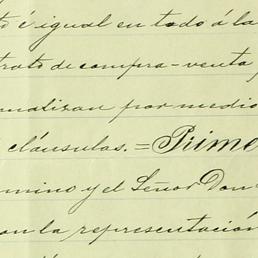 é igual en todo á la
trato de compra-venta
nalizan por medio
cláusulas.=Prime
mino y el Señor Don
on la representación